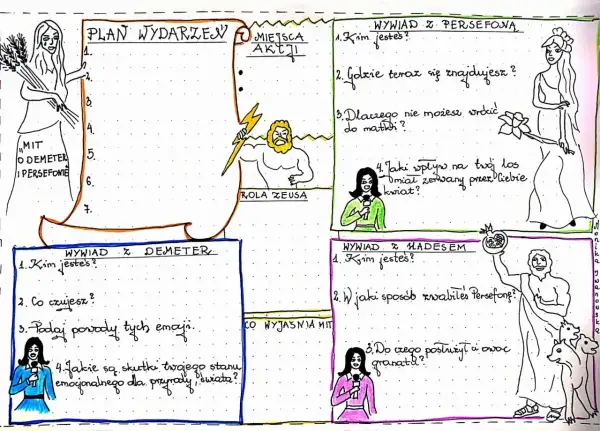 PLAN WYDARZEŃ
1.
2.
3.
4.
5.
6.
7.
"MIT
O DEMETER
I PERSEFONIE"
MIEJSCA
AKCJI
ROLA ZEUSA
CO WYJAŚNIA MIT
WYWIAD Z PERSEFONĄ
1. Kim jesteś?
2. Gdzie teraz się znajdujesz?
3. Dlaczego nie możesz wrócić
do matki?
4. Jaki wpływ na twój los
miał zerwany przez Ciebie
kwiat?
WYWIAD Z DEMETER
1. Kim jesteś?
2. Co czujesz?
3. Podaj powody tych emocji.
4. Jakie są skutki twojego stanu
emocjonalnego dla przyrody, świata?
WYWIAD Z HADESEM
1. Kim jesteś?
2. W jaki sposób zwabiłeś Persefonę?
3. Do czego posłużył ci owoc
granatu?